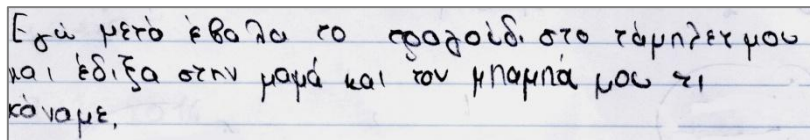 Εγώ μετά έβαλα το τραγοίδι στο τάμπλετ μου
και έδιξα στην μαμά και τον μπαμπά μου τι
κάναμε.